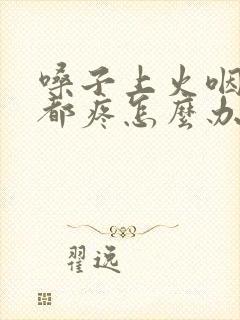 嗓子上火咽
都疼怎麼办
翟逸